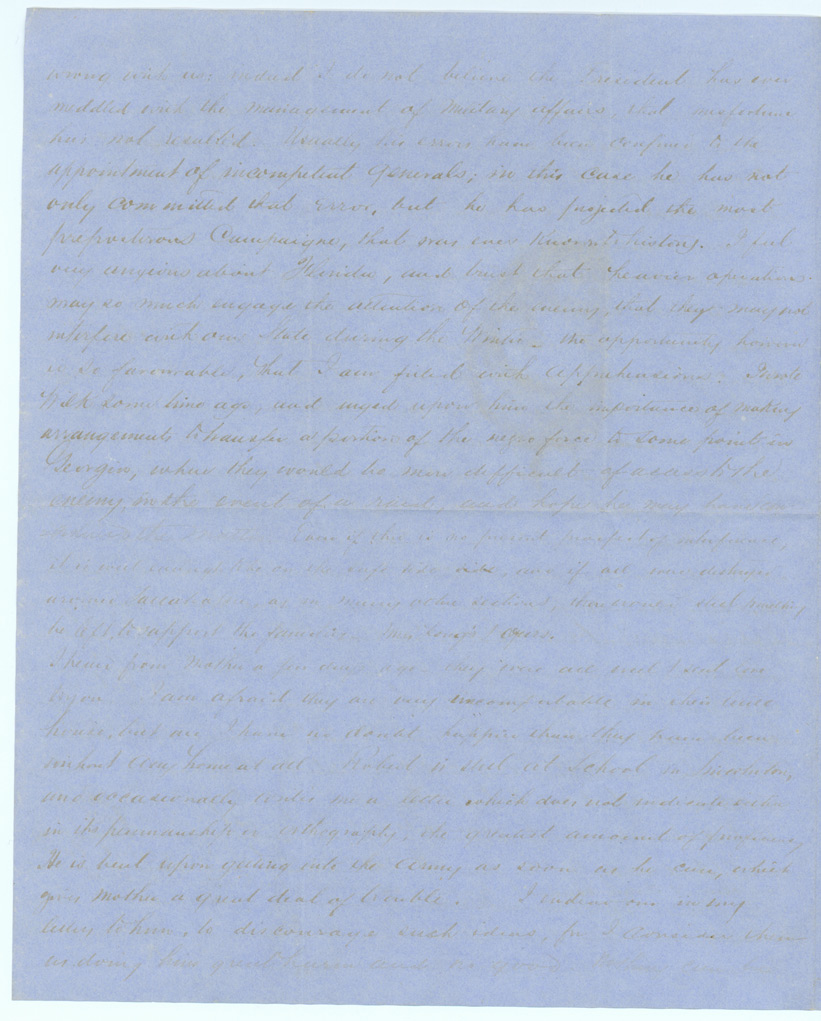 wrong with us. Indeed I do not believe the President has ever
meddled with the management of Military affairs, that misfortune
has not resulted. Usually his errors have been confined to the
appointment of incompetent Generals; in this case he has not
only committed that error, but he has projected the most
preposterous Campaigne, that was ever known to history. I feel
very anxious about Florida, and trust that heavier operations
may so much engage the attention of the enemy, that they may not
interfere with our State during the Winter. The opportunity however
is so favourable, that I am filled with apprehensions. I wrote
some time ago, and urged upon him the importance of making
arrangements to transfer a portion of the negro force to some point in
Georgia, where they would be more difficult of access to the
enemy in the event of a raid, and hope he may have
Even if there is no present prospect of interference,
it is well enough to be on the safe side, and if all was destroyed
around Tallahassee, as in many other sections, there would not
be left to support the families.
I heard from Mother a few days ago they were all well
I am afraid they are very uncomfortable in their little
house, but I have no doubt happier than they have been
without home at all. Robert is still at School in Lincolnton,
and occasionally writes me a letter which does not indicate either
in its penmanship or orthography, the greatest amount of progress,
He is bent upon getting into the Army as soon as he can, which
gives Mother a great deal of trouble. I endeavour in my
letters to him, to discourage such ideas, for I consider them
as doing him great harm and no good.